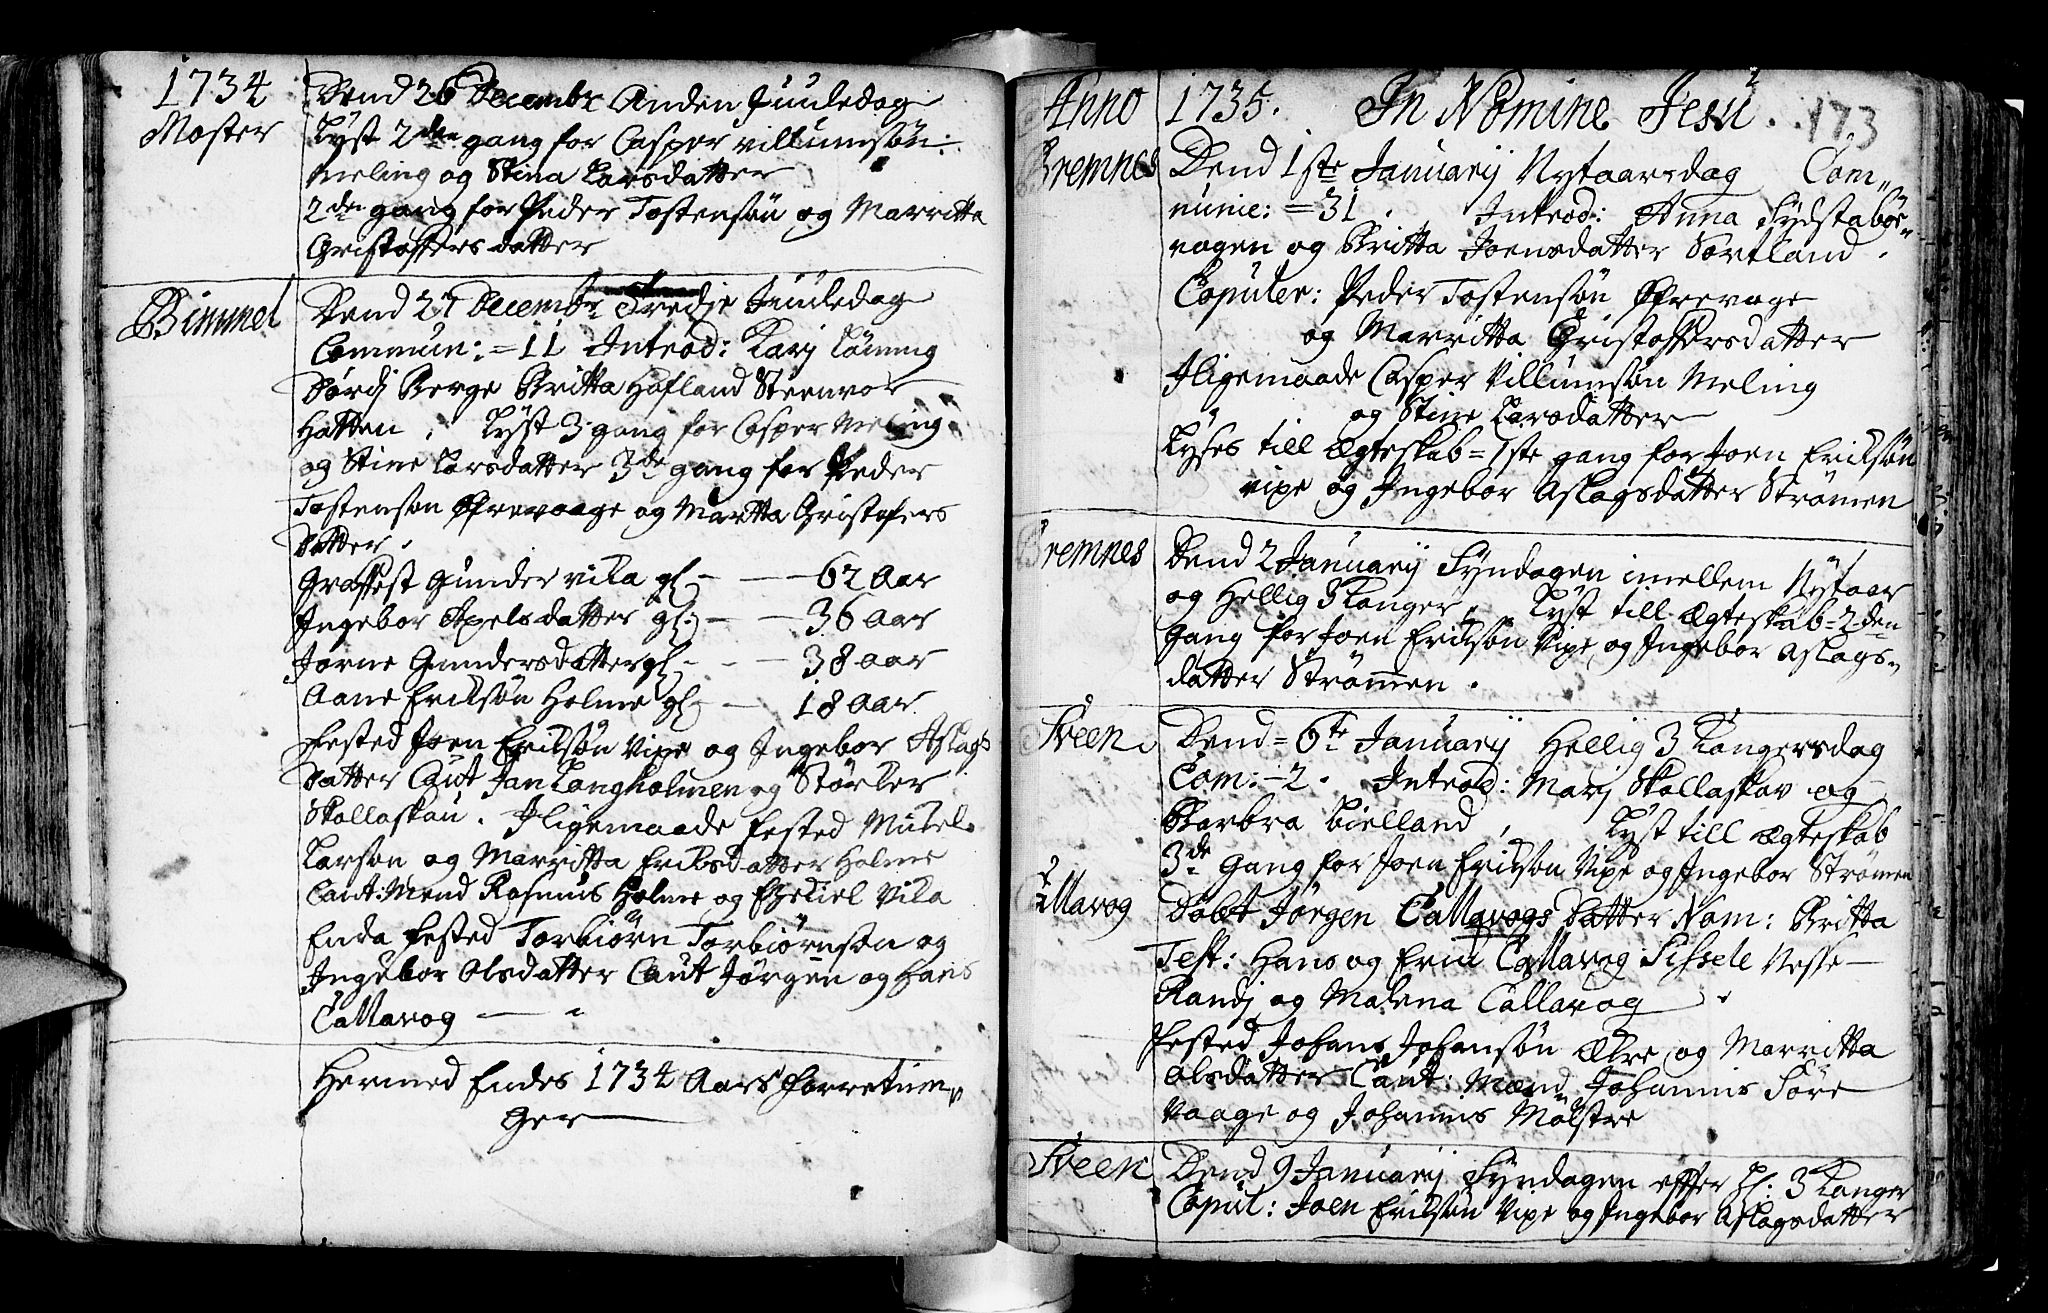 1734
Moster
Dend 26 Decembr Anden Juuledag
Lyst 2den gang for Casper villumsøn
Meling og Stina Larsdatter
2den gang for Peder Tostensøn og Marritta
Christoffers datter
Bimmel
Dend 27 Decembr Tredje Juuledag
Commun: = 11 Introd: Karj
Sørdj Berge Britta Hafland Steenvor
Hatten. Lyst 3 gang for Casper Meling
og Stine Larsdatter 3de gang for Peder
Tostensøn Øfrevaage og Maritta Christofers
datter.
Graffest Gunder vika gl - - 62 Aar
Ingebor Apelsdatter gl: - - 36 Aar
Jorne Gundersdatter gl - - - 38 aar
Aane Eriksøn Holme gl - - 18 Aar
Fested Joen Eriksøn Vixe og Ingebor Aslags
datter Caut Jan Langholmen og Størker
Skallaskau. Iligemaade fested Mikel
Larsøn og Marritta Eriksdatter Holme
Caut: Mend Rasmus Holme og Ezekiel Vika
Enda fested Torbiørn Torbiørnsøn og
Ingebor Olsdatter Caut Jørgen og Hans
Callavog
Hermed Endes 1734 Aars forretnin-
ger
Anno 1735. In Nomine Jesu. 173
Bremnes
Dend 1ste Januarij Nytaarsdag Com-
munic: = 31. Introd: Anna Sydstabøe-
vogen og Britta Joensdatter Sortland.
Copuler: Peder Tostensøn Øfrevage
og Marritta Christoffersdatter
Iligemaade Casper Villumsøn Meling
og Stine Larsdatter
Lyses till Ægteskab = 1ste gang for Joen Eriksøn
vixe og Ingebor Aslagsdatter Strømen
Bremnes
Dend 2 Januarij Syndagen imellem Nytaar
og Hellig 3 Konger, Lyst till Ægteskab = 2den
Gang for Joen Eriksøn Vixe og Ingebor Aslags-
datter Strømen.
Sveen
Dend = 6te Januarij Hellig 3 Kongersdag
Com: - 2. Introd: Marj Skallaskav og
Barbra Bielland, Lyst till Ægteskab
3de Gang for Joen Eriksøn Vixe og Ingebor Strømen
Callavog
Døbt Jørgen Callavogs Datter Nom: Britta
Test: Hans og Erik Callavog Sissele Nesse
Randj og Malena Callavog
Fested Johans Johansøn Økre og Marritta
olsdatter Caut: Mænd Johannis Søre
Vaage og Johannis Mølstre
Sveen
Dend 9 Januarij Syndagen effter H: 3 Konger
Copul: Joen Eriksøn Vixe og Ingebor Aslagsdatter